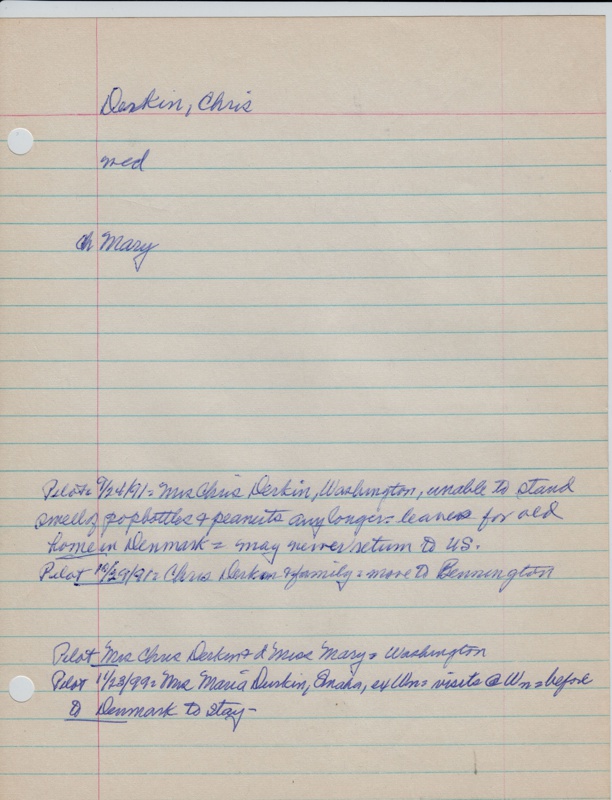 Derkin, Chris
med
ch Mary
Pilot = 9/24/91 = Mrs Chris Derkin, Washington, unable to stand
smell of popbottles & peanuts any longer = leaves for old
home in Denmark = may never return to US.
Pilot 10/29/91 = Chris Derkin & family = move to Bennington
Pilot Mrs Chris Derkin & d Miss Mary = Washington
Pilot 11/23/99 = Mrs Maria Durkin, Omaha, ex Wn = visits @ Wn = before
to Denmark to stay -